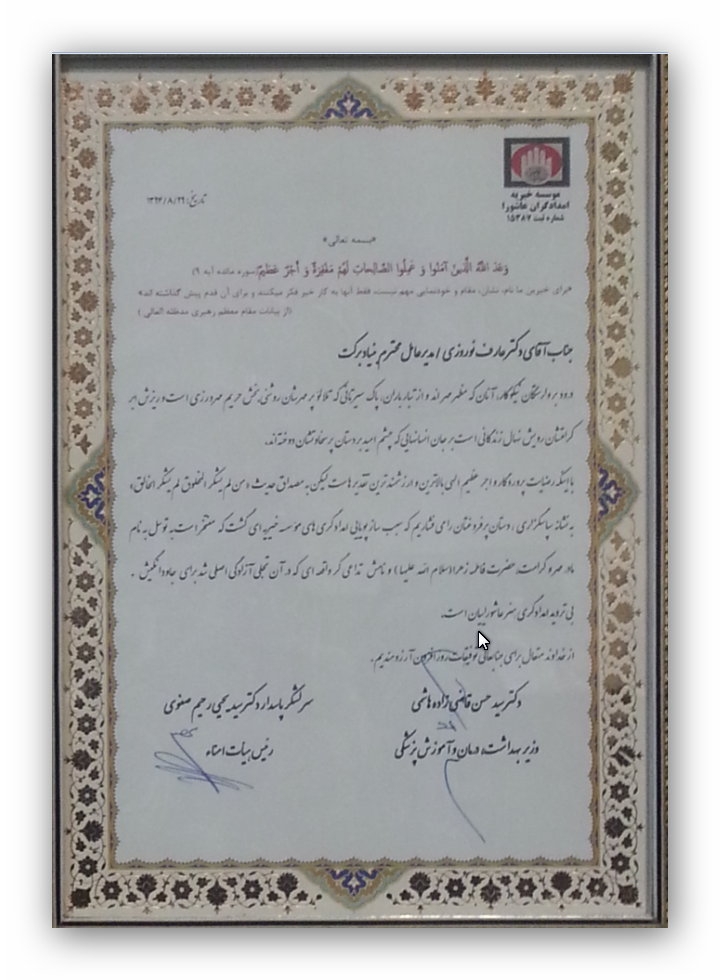 موسسه خیریه
امدادگران عاشورا
شماره ثبت ۱۵۳۸۷
تاریخ: ۱۳۹۳/۸/۲۹
«بسمه تعالی»
وَعَدَ اللَّهُ الَّذِينَ آمَنُوا وَ عَمِلُوا الصَّالِحاتِ لَهُم مَغْفِرَةٌ وَ أَجْرٌ عَظِيمٌ(سوره مائده آیه ۹)
«برای خیرین ما نام، نشان، مقام و خودنمایی مهم نیست، فقط آنها به کار خیر فکر میکنند و برای آن قدم پیش گذاشته اند»
(از بیانات مقام معظم رهبری مدظله العالی)
جناب آقای دکتر عارف نوروزی / مدیر عامل محترم بنیاد برکت
درود بر وارستگان نیکوکار، آنان که مظهر مهر اند و از تبار باران، پاک سیرتانی که تلالؤ پر مهرشان روشنی بخش حریم مهرورزی است و ریزش ابر
کرامتشان رویش نهال زندگانی است بر جان انسانهایی که چشم امید بر دستان پر سخاوتشان دوخته اند.
با اینکه رضایت پروردگار و اجر عظیم الهی بالاترین و ارزشمند ترین تقدیر هاست لیکن به مصداق حدیث «من لم یشکر المخلوق لم یشکر الخالق»
به نشانه سپاسگزاری، دستان پر فروغتان را می فشاریم که سبب ساز پویایی امدادگری های مؤسسه خیریه ای گشت که مفتخر است به توسل به نام
مادر مهر و کرامت، حضرت فاطمه زهرا(سلام الله علیها) و نامش تداعی گر واقعه ای که در آن تجلی آزادگی اصلی شد برای جاودانگیش .
بی تردید امدادگری هنر عاشوراییان است.
از خداوند متعال برای جنابعالی توفیقات روز افزون آرزومندیم.
دکتر سید حسن قاضی زاده هاشمی
وزیر بهداشت، درمان و آموزش پزشکی
سرلشکر پاسدار دکتر سید یحیی رحیم صفوی
رئیس هیأت امناء